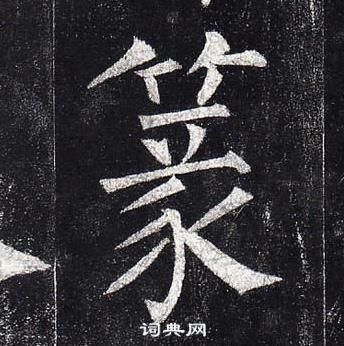 篆
词典网